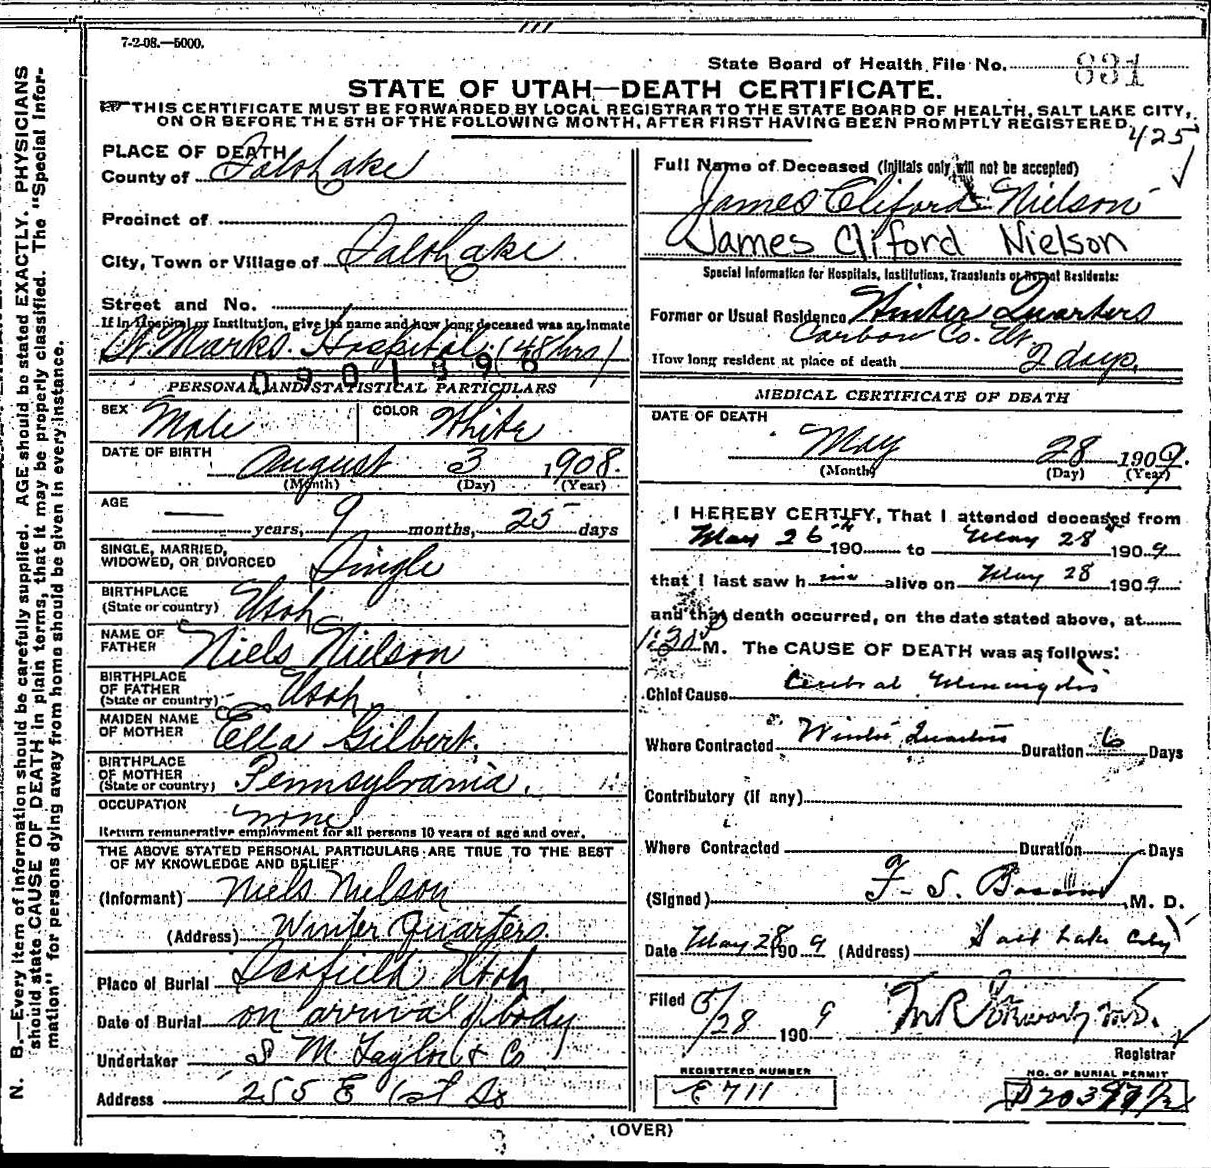 7-2-08.—5000.
State Board of Health, File No. 831
STATE OF UTAH—DEATH CERTIFICATE.
THIS CERTIFICATE MUST BE FORWARDED BY LOCAL REGISTRAR TO THE STATE BOARD OF HEALTH, SALT LAKE CITY,
ON OR BEFORE THE 5TH OF THE FOLLOWING MONTH, AFTER FIRST HAVING BEEN PROMPTLY REGISTERED.
425
PLACE OF DEATH
County of Salt Lake
Precinct of
City, Town or Village of Salt Lake
Street and No.
If in Hospital or Institution, give its name and how long deceased was an inmate
St. Marks. Hospital. (48 hrs)
0901896
PERSONAL AND STATISTICAL PARTICULARS
SEX Male COLOR White
DATE OF BIRTH August 3 1908.
(Month) (Day) (Year)
AGE — years, 9 months, 25 days
SINGLE, MARRIED,
WIDOWED, OR DIVORCED Single
BIRTHPLACE
(State or country) Utah
NAME OF
FATHER Niels Nielson
BIRTHPLACE
OF FATHER
(State or country) Utah
MAIDEN NAME
OF MOTHER Ella Gilbert.
BIRTHPLACE
OF MOTHER
(State or country) Pennsylvania.
OCCUPATION none
Return remunerative employment for all persons 10 years of age and over.
THE ABOVE STATED PERSONAL PARTICULARS ARE TRUE TO THE BEST
OF MY KNOWLEDGE AND BELIEF
(Informant) Niels Nielson
(Address) Winter Quarters.
Place of Burial Scofield Utah.
Date of Burial on arrival of body
Undertaker S M Taylor & Co
Address 255 E 1st So
Full Name of Deceased (Initials only will not be accepted)
James Cliford Nielson
James Cliford Nielson
Special Information for Hospitals, Institutions, Transients or Recent Residents:
Former or Usual Residence Winter Quarters
Carbon Co. Ut.
How long resident at place of death 2 days.
MEDICAL CERTIFICATE OF DEATH
DATE OF DEATH
May 28 1909.
(Month) (Day) (Year)
I HEREBY CERTIFY, That I attended deceased from
May 26th 190 to May 28th 1909
that I last saw him alive on May 28 1909.
and that death occurred, on the date stated above, at
1:30 P M. The CAUSE OF DEATH was as follows:
Chief Cause
Where Contracted Winter Quarters Duration 6 Days
Contributory (if any)
Where Contracted Duration Days
(Signed) F. S. M. D.
Date May 28 1909 (Address) Salt Lake City
Filed 5/28 1909
Registrar
REGISTERED NUMBER
E 711
NO. OF BURIAL PERMIT
(OVER)
N. B.—Every item of information should be carefully supplied. AGE should be stated EXACTLY. PHYSICIANS
should state CAUSE OF DEATH in plain terms, that it may be properly classified. The "Special Infor-
mation" for persons dying away from home should be given in every instance.